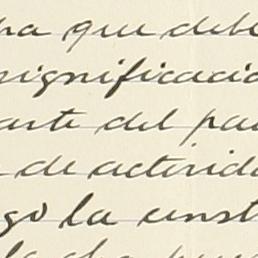 que debe
significació
arte del pa
de activida
go la const